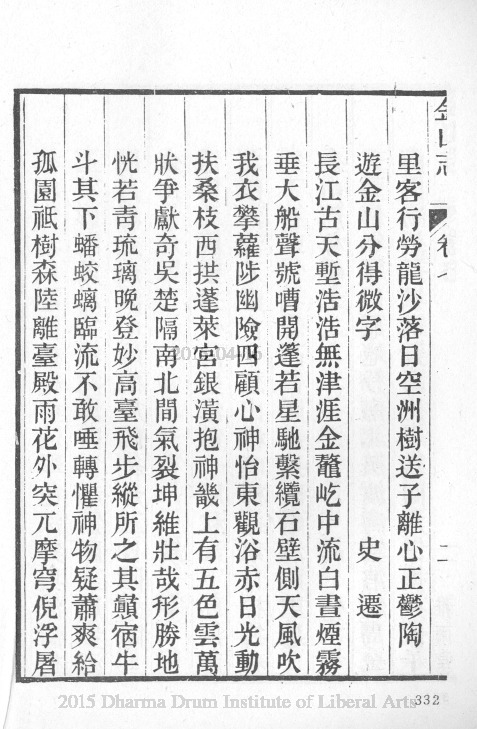 金山志 卷七 二
里客行勞龍沙落日空洲樹送子離心正鬱陶
遊金山分得微字 史遷
長江古天塹浩浩無津涯金鼇屹中流白晝煙霧
垂大船聲號嘈開蓬若星馳繫纜石壁側天風吹
我衣攀蘿陟幽險四顧心神怡東觀浴赤日光動
扶桑枝西拱蓬萊宮銀潢抱神畿上有五色雲萬
狀爭獻奇吳楚隔南北間氣裂坤維壯哉形勝地
恍若青琉璃晚登妙高臺飛步縱所之其巔宿牛
斗其下蟠蛟螭臨流不敢唾轉懼神物疑蕭爽給
孤園祇樹森陸離臺殿雨花外突兀摩穹倪浮屠
332
2015 Dharma Drum Institute of Liberal Arts